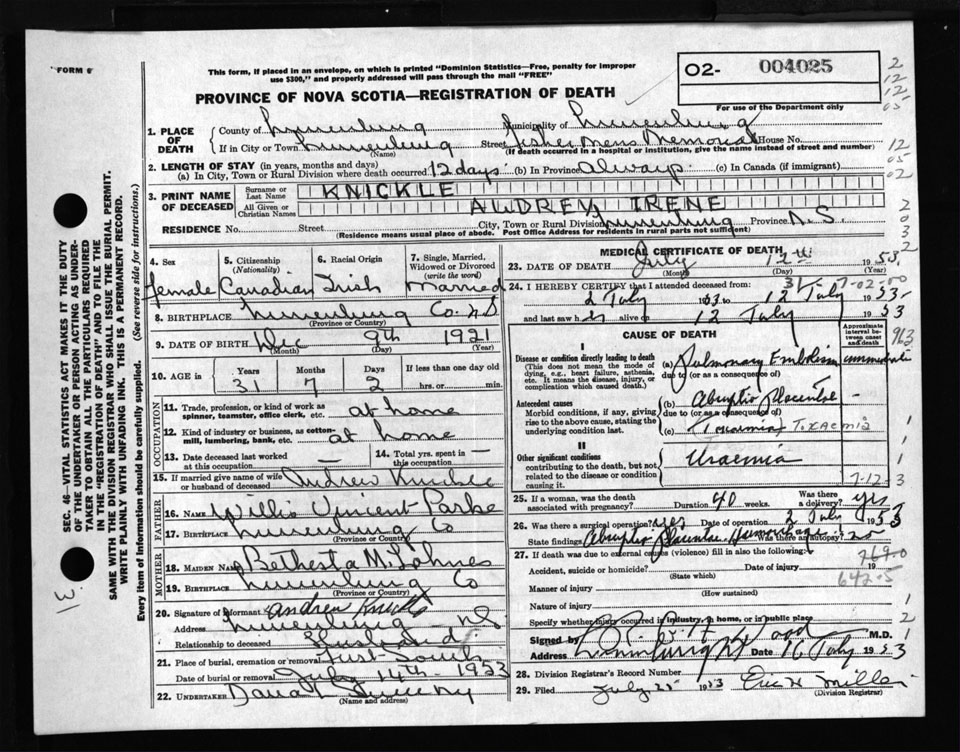 FORM 6
This form, if placed in an envelope, on which is printed "Dominion Statistics—Free, penalty for improper
use $300," and properly addressed will pass through the mail "FREE"
O2- 004025
For use of the Department only
PROVINCE OF NOVA SCOTIA—REGISTRATION OF DEATH
1. PLACE OF DEATH
County of Lunenburg Municipality of Lunenburg
If in City or Town Lunenburg Street Fishermens Memorial House No.
(Name) (If death occurred in a hospital or institution, give the name instead of street and number)
2. LENGTH OF STAY (in years, months and days)
(a) In City, Town or Rural Division where death occurred 12 days (b) In Province always (c) In Canada (if immigrant)
3. PRINT NAME OF DECEASED
Surname or Last Name KNICKLE
All Given or Christian Names AUDREY IRENE
RESIDENCE No. Street City, Town or Rural Division Lunenburg Province N.S.
(Residence means usual place of abode. Post Office Address for residents in rural parts not sufficient)
4. Sex female
5. Citizenship (Nationality) Canadian
6. Racial Origin Irish
7. Single, Married, Widowed or Divorced (write the word) Married
8. BIRTHPLACE Lunenburg Co. N.S
(Province or Country)
9. DATE OF BIRTH Dec 9th 1921
(Month) (Day) (Year)
10. AGE in Years 31 Months 7 Days 2 If less than one day old hrs. or min.
OCCUPATION
11. Trade, profession, or kind of work as spinner, teamster, office clerk, etc. at home
12. Kind of industry or business, as cotton-mill, lumbering, bank, etc. at home
13. Date deceased last worked at this occupation —
14. Total yrs. spent in this occupation —
15. If married give name of wife or husband of deceased Andrew Knickle
FATHER
16. NAME Willis Vincent Parke
17. BIRTHPLACE Lunenburg Co
(Province or Country)
MOTHER
18. MAIDEN NAME Bethesta M. Lohnes
19. BIRTHPLACE Lunenburg Co
(Province or Country)
20. Signature of Informant Andrew Knickle
Address Lunenburg NS
Relationship to deceased Husband
21. Place of burial, cremation or removal First South
Date of burial or removal July 14th 1953
22. UNDERTAKER
(Name and address)
MEDICAL CERTIFICATE OF DEATH
23. DATE OF DEATH July 12th 1953
(Month) (Day) (Year)
24. I HEREBY CERTIFY that I attended deceased from:
2 July 1953 to 12 July 1953
and last saw her alive on 12 July 1953
CAUSE OF DEATH
Approximate interval between onset and death
I
Disease or condition directly leading to death
(This does not mean the mode of dying, e.g., heart failure, asthenia, etc. It means the disease, injury, or complication which caused death.)
(a) Pulmonary Embolism immediate
due to (or as a consequence of)
Antecedent causes
Morbid conditions, if any, giving rise to the above cause, stating the underlying condition last.
(b) Abruptio Placentae
due to (or as a consequence of)
(c) Toxaemia Toxaemia
II
Other significant conditions
contributing to the death, but not related to the disease or condition causing it.
Uraemia
7-12 3
25. If a woman, was the death associated with pregnancy? Duration 40 weeks. Was there a delivery? yes
26. Was there a surgical operation? yes Date of operation 2 July 1953
State findings Abruptio Placentae Hemorrhage Was there an autopsy? no
27. If death was due to external causes (violence) fill in also the following:
Accident, suicide or homicide? Date of injury 19
(State which)
Manner of injury
(How sustained)
642.05
Nature of injury
Specify whether injury occurred in industry, in home, or in public place
Signed by Wood M.D.
Address Lunenburg Date 16 July 1953
28. Division Registrar's Record Number
29. Filed July 25 1953 Eric H Miller
(Division Registrar)
SEC. 46—VITAL STATISTICS ACT MAKES IT THE DUTY
OF THE UNDERTAKER OR PERSON ACTING AS UNDER-
TAKER TO OBTAIN ALL THE PARTICULARS REQUIRED
IN THE "REGISTRATION OF DEATH" AND TO FILE THE
SAME WITH THE DIVISION REGISTRAR WHO SHALL ISSUE THE BURIAL PERMIT.
WRITE PLAINLY WITH UNFADING INK. THIS IS A PERMANENT RECORD.
Every item of information should be carefully supplied. (See reverse side for instructions.)